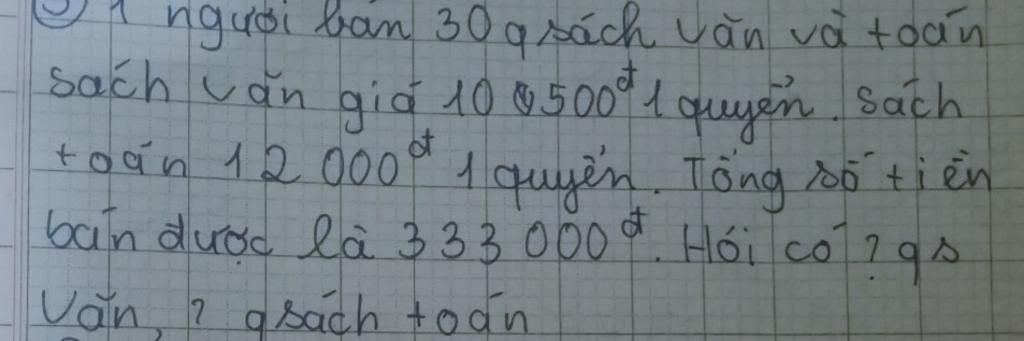 ③ 1 người bán 30 q sách văn và toán
sách văn giá 10 500đ 1 quyển. Sách
toán 12 000đ 1 quyển. Tổng số tiền
bán được là 333 000đ. Hỏi có ? qs
văn, ? q sách toán